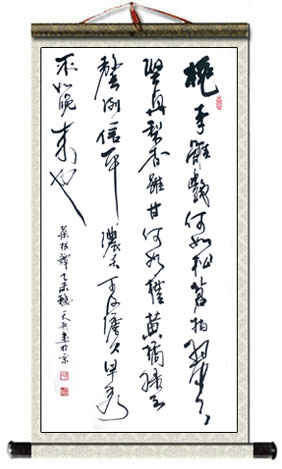 桃李雖艷何如松蒼柏翠之
堅貞梨杏雖甘何如橙黃橘綠之
馨冽信乎濃夭不及淡久早秀
不如晚成也
菜根譚乙未書於京